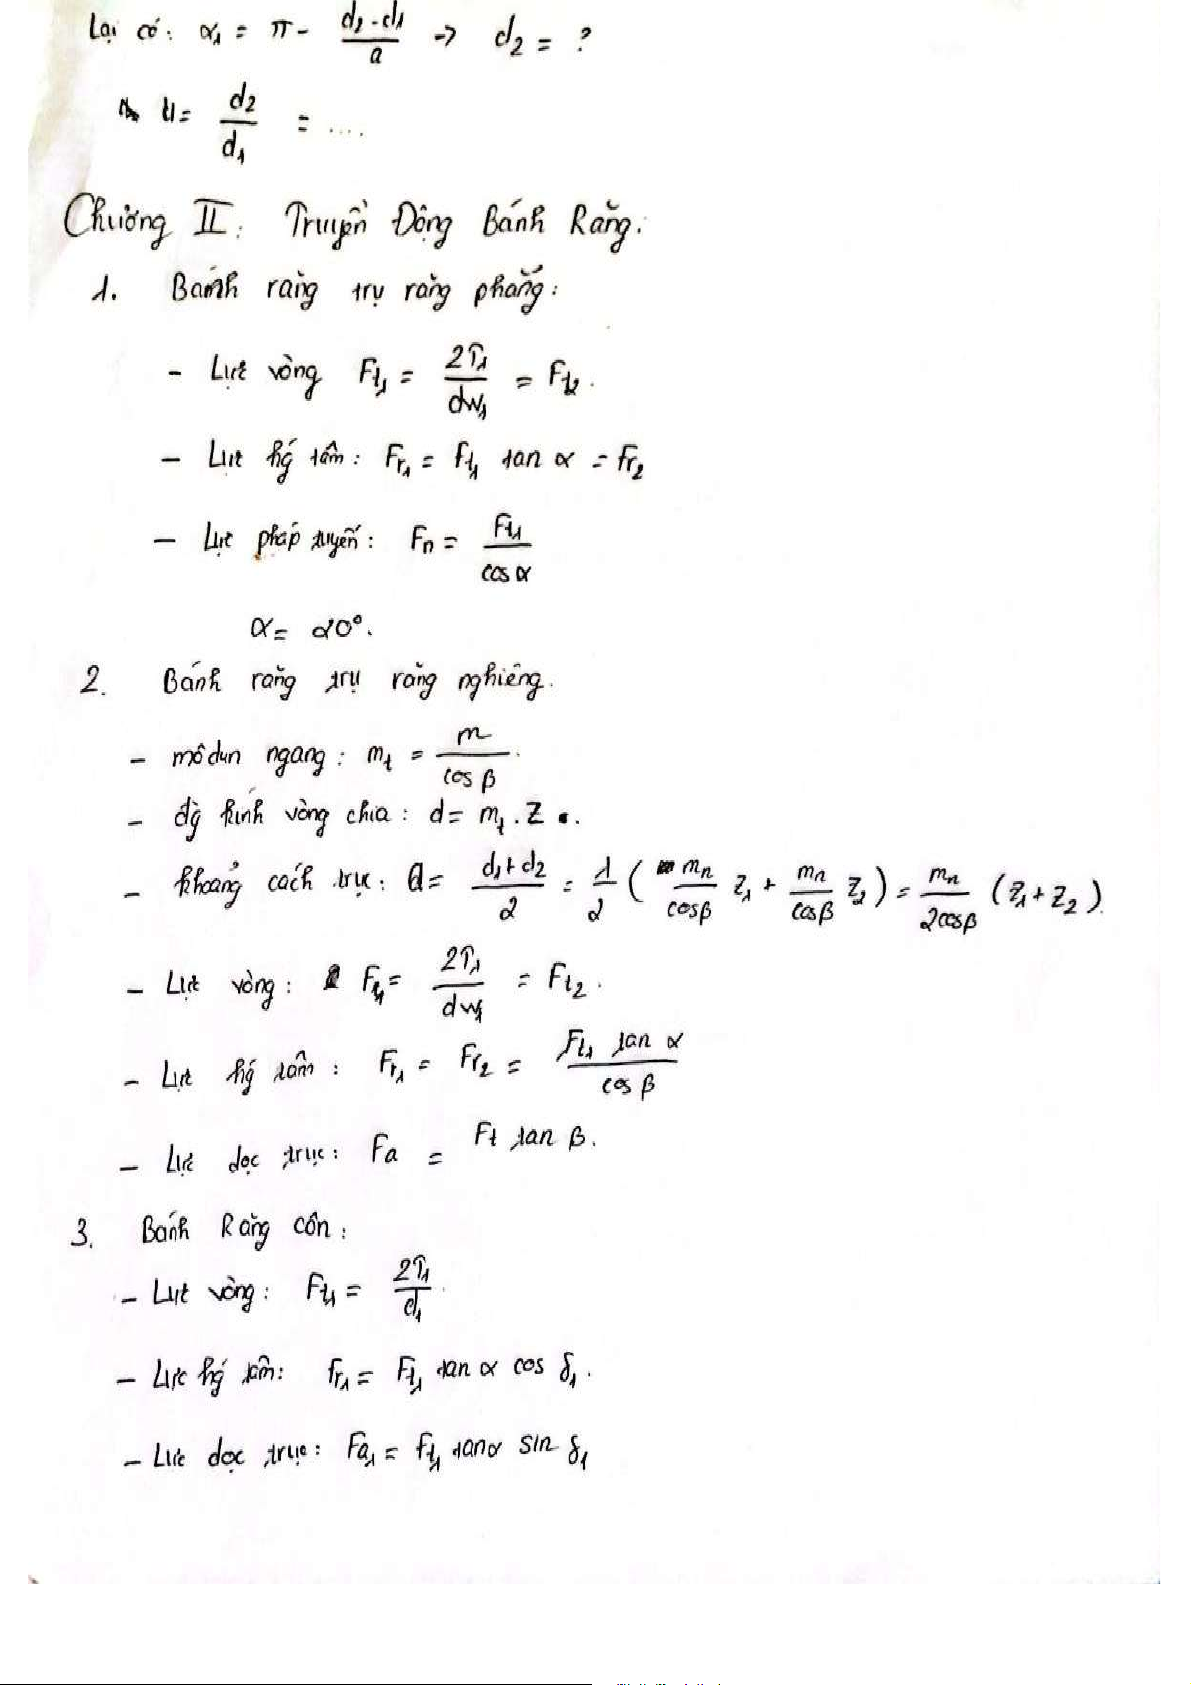 Lại có: α₁ = π - (d₂ - d₁)/a -> d₂ = ?
u = d₂/d₁ = ....
Chương II: Truyền Động Bánh Răng.
1. Bánh răng trụ răng phẳng:
- Lực vòng Ft₁ = 2T₁/dw₁ = Ft₂.
- Lực hg tâm: Fr₁ = Ft₁ tan α = Fr₂
- Lực pháp tuyến: Fn = Ft₁/cos α
α = 20°.
2. Bánh răng trụ răng nghiêng.
- môđun ngang: mt = m/cos β.
- đg kính vòng chia: d = mt . Z .
- khoảng cách trục: a = (d₁ + d₂)/2 = 1/2 (mn/cosβ Z₁ + mn/cosβ Z₂) = mn/2cosβ (Z₁ + Z₂).
- Lực vòng: Ft₁ = 2T₁/dw₁ = Ft₂.
- Lực hg tâm: Fr₁ = Fr₂ = Ft₁ tan α/cos β
- Lực dọc trục: Fa = Ft tan β.
3. Bánh Răng côn:
- Lực vòng: Ft₁ = 2T₁/d₁
- Lực hg tâm: Fr₁ = Ft₁ tan α cos δ₁.
- Lực dọc trục: Fa₁ = Ft₁ tanα sin δ₁